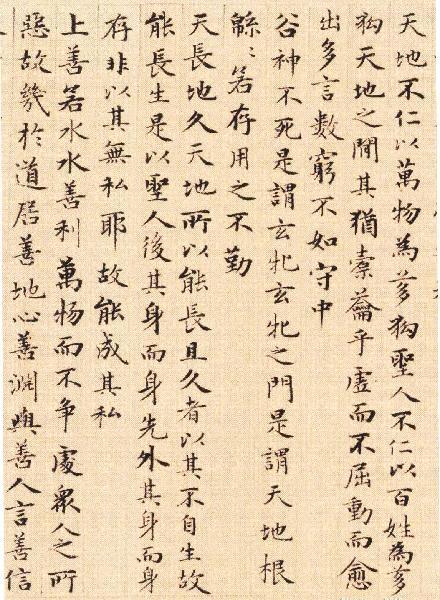 天地不仁以萬物為芻狗聖人不仁以百姓為芻
狗天地之間其猶橐籥乎虛而不屈動而愈
出多言數窮不如守中
谷神不死是謂玄牝玄牝之門是謂天地根
緜〻若存用之不勤
天長地久天地所以能長且久者以其不自生故
能長生是以聖人後其身而身先外其身而身
存非以其無私耶故能成其私
上善若水水善利萬物而不争處衆人之所
惡故幾於道居善地心善淵與善人言善信